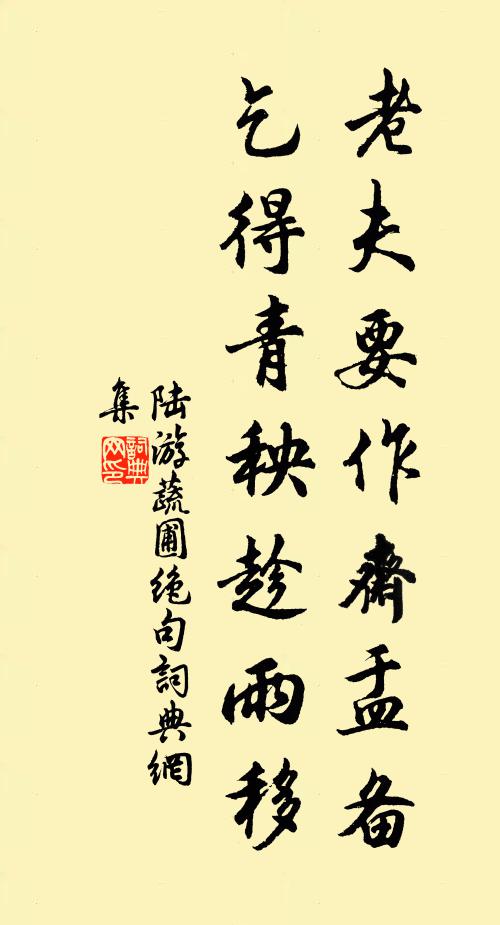 老夫要作齋盂备
乞得青秧趁雨移
陆游蔬圃绝句詞典網
集
詞典网印